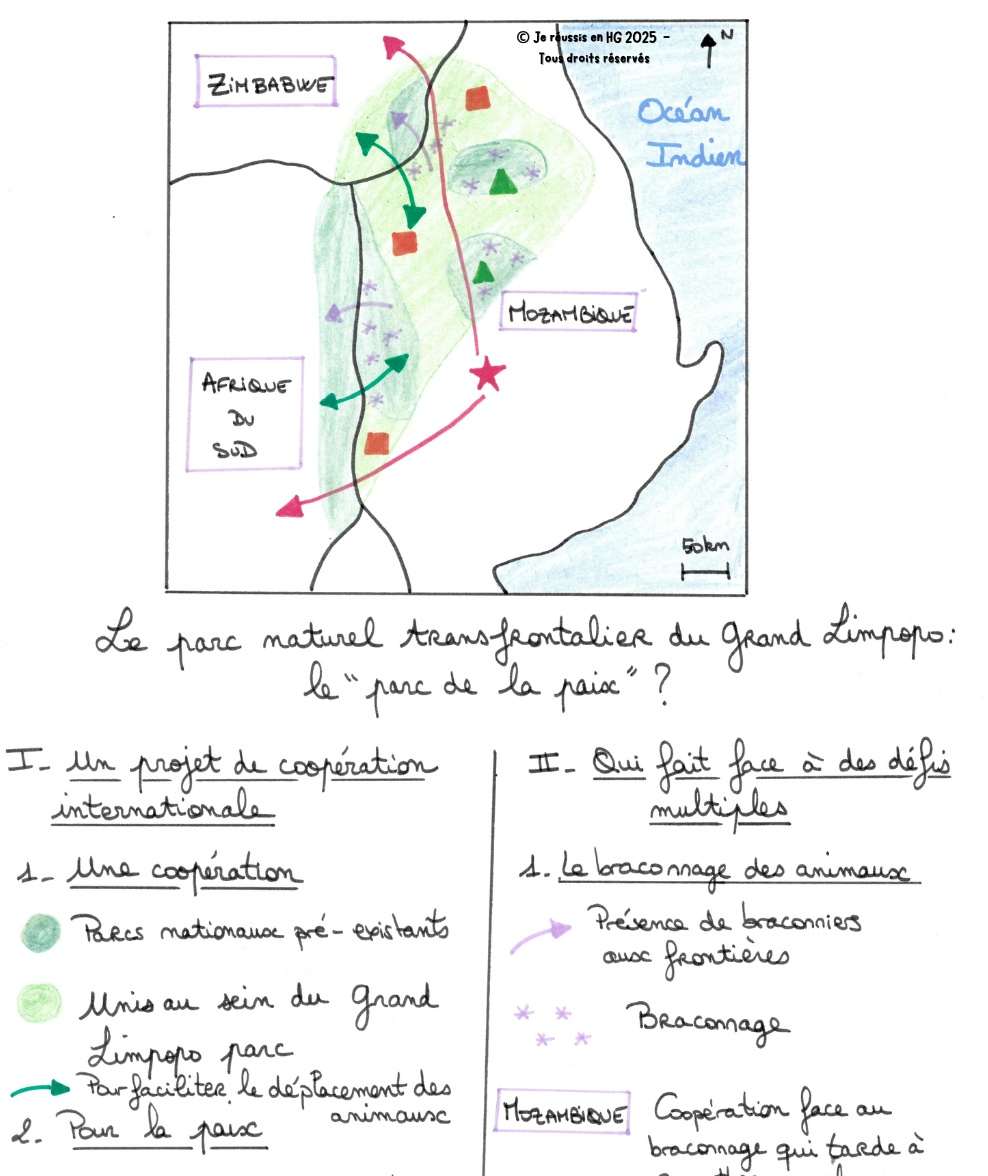 © Je réussis en HG 2025 -
Tous droits réservés
N
ZIMBABWE
Océan
Indien
MOZAMBIQUE
AFRIQUE
DU
SUD
50km
Le parc naturel transfrontalier du Grand Limpopo:
le "parc de la paix" ?
I- Un projet de coopération
internationale
1- Une coopération
Parcs nationaux pré-existants
Unis au sein du Grand
Limpopo parc
Par faciliter le déplacement des
animaux
2. Pour la paix
II- Qui fait face à des défis
multiples
1. Le braconnage des animaux
Présence de braconniers
aux frontières
Braconnage
MOZAMBIQUE
Coopération face au
braconnage qui tarde à